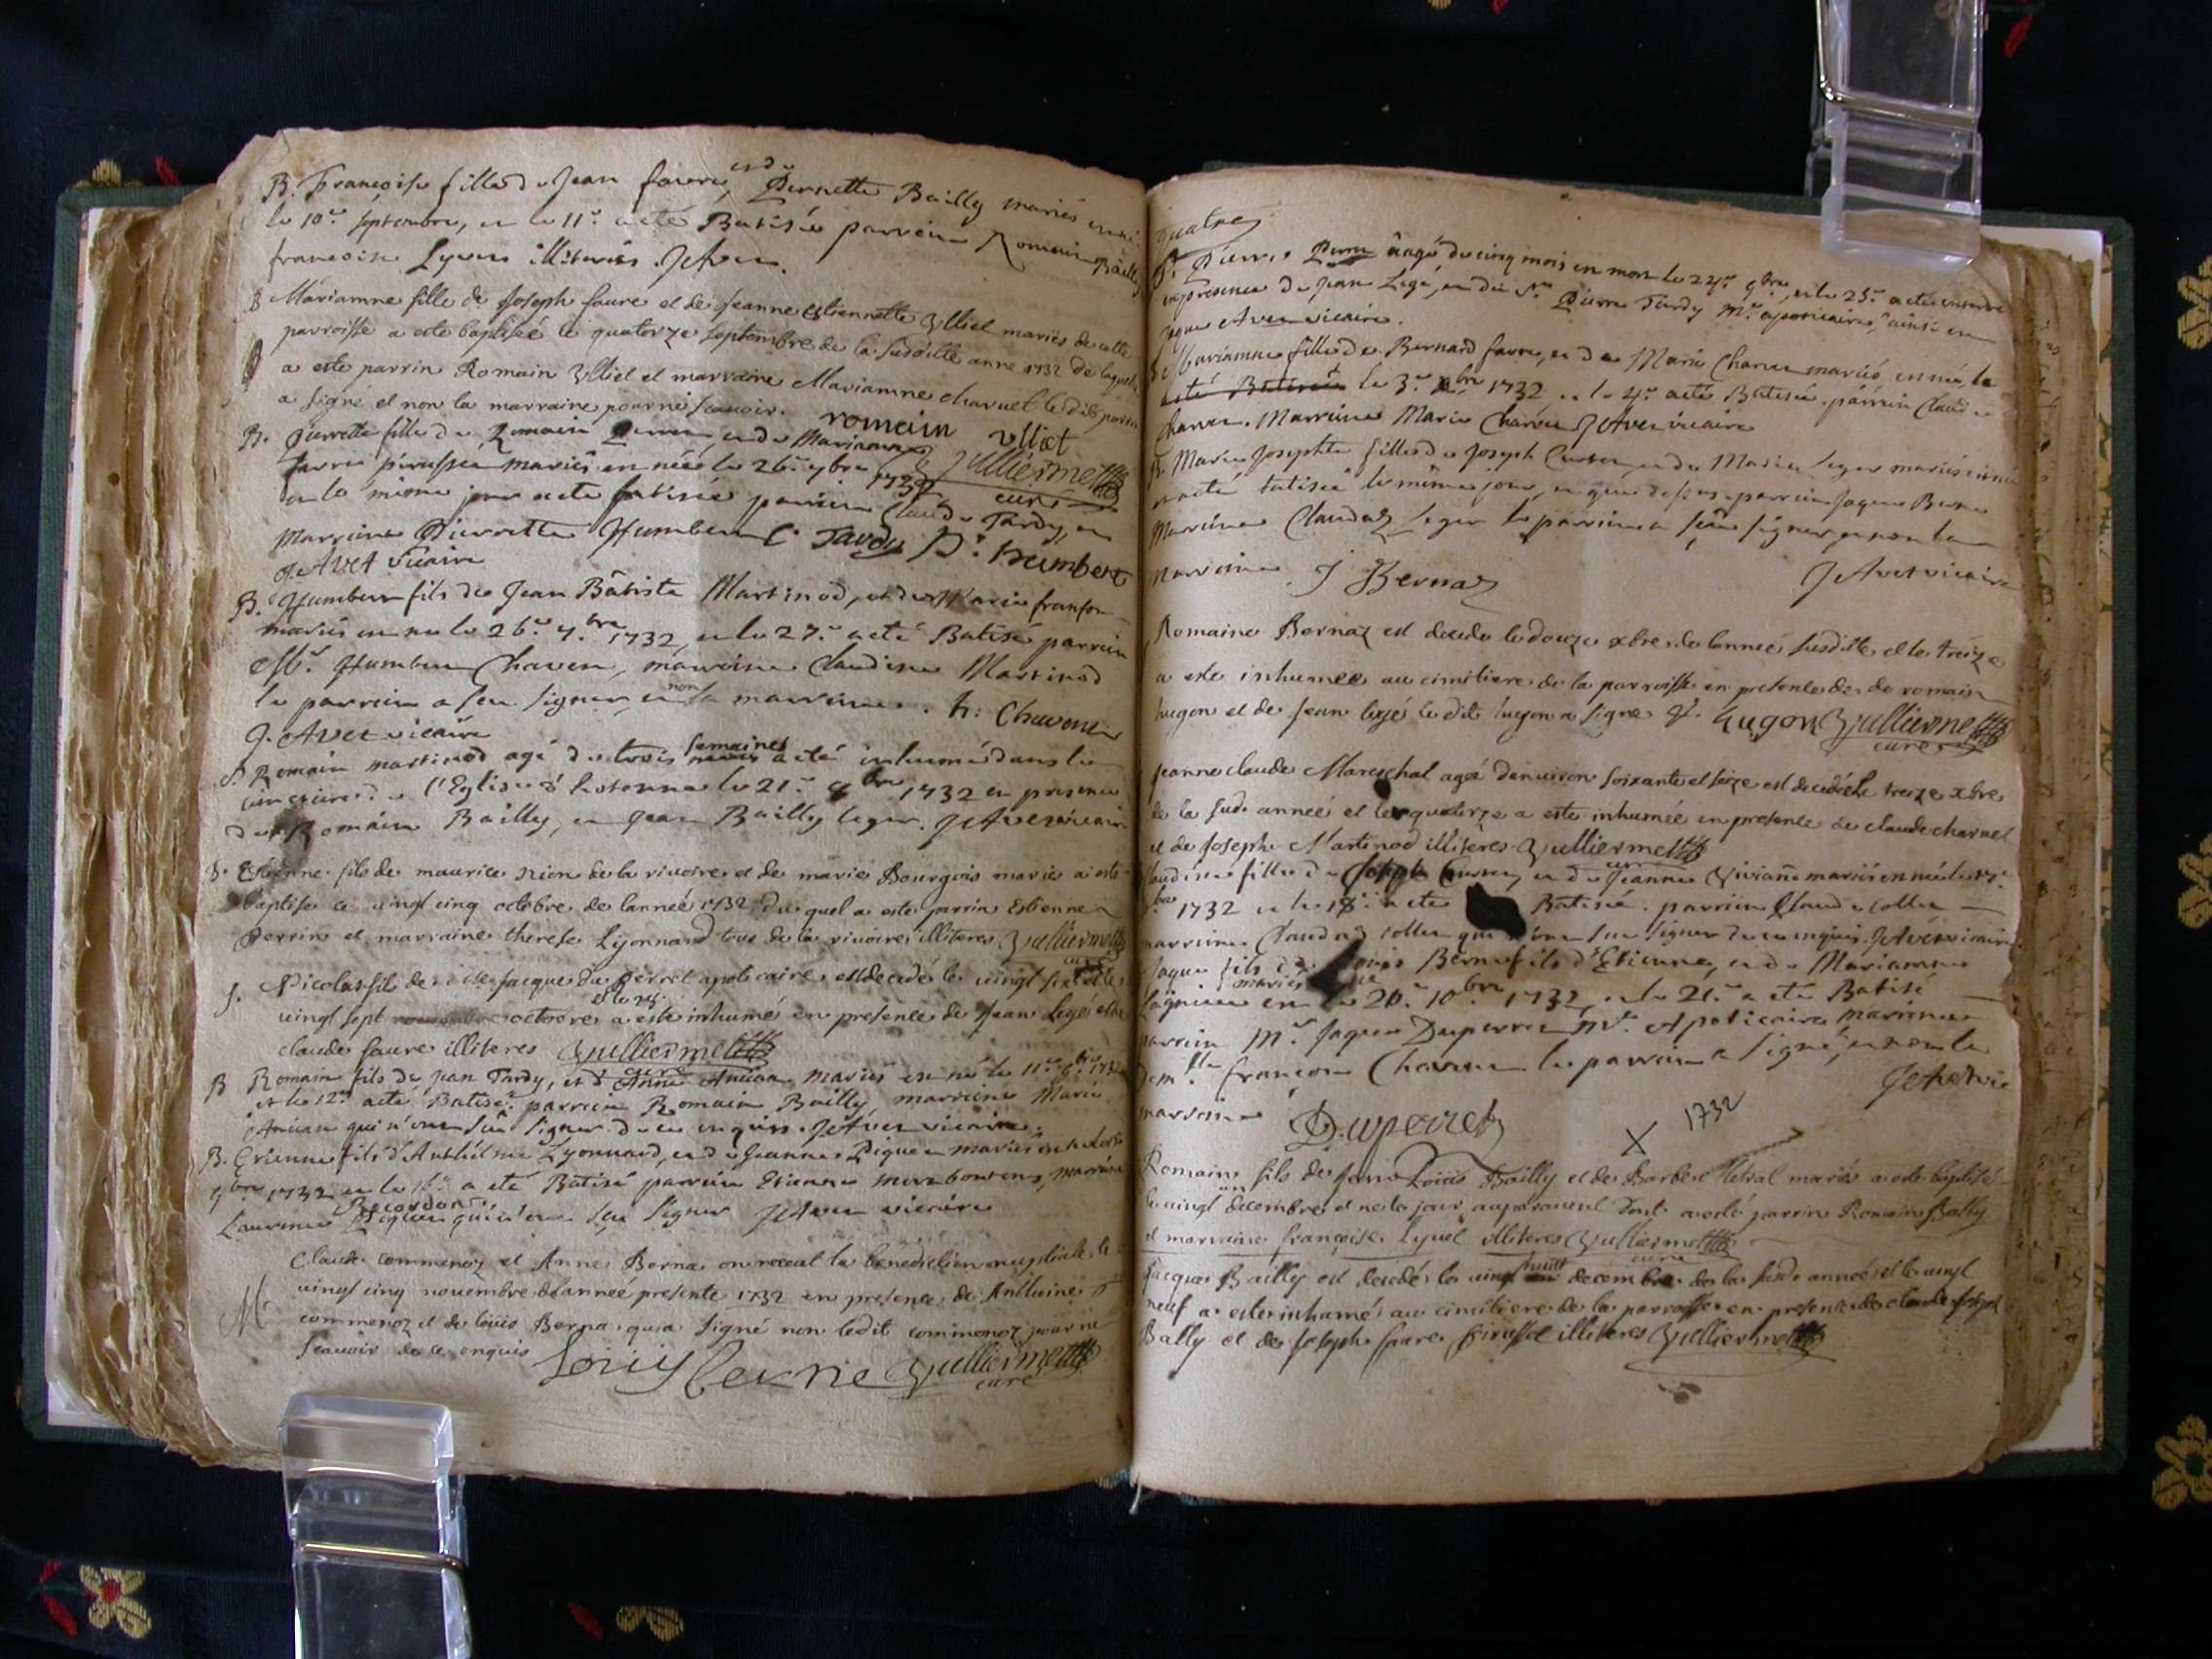 B. Françoise fille de Jean favre, et de Pernette Bailly mariés est née
le 10e septembre, et le 11e a eté Batisée parrein Romain Bailly
françoise Lyvet illiterés J Avet
B Mariamne fille de Joseph faure et de Jeanne estiennette Vlliel mariés de cette
parroisse a esté baptiseé le quatorze septembre de la susditte anné 1732 de laquelle
a esté parrin Romain Vlliel et marraine Mariamne charvet le dit parrin
a signé et non la marraine pour ne sçauoir. romain vlliet
B. Pierrette fille de Romain et de Mariamne Vulliermettz
favre mariés est née le 26e 7bre 1732 curé
et le même jour a eté batisée parrein Claude Tardy, et
Marreine Pierrette Humbert C. Tardy P. humbert
J. Avet vicaire
B. Humbert fils de Jean Bâtiste Martinod, et de Marie
mariés est né le 26e 7bre 1732, et le 27e a eté Batisé parrein
Mr. Humbert Chavent, marreine Claudine Martinod
le parrein a seu signer, et non la marreine. h: Chavent
J. Avet vicaire
S Romain martinod agé de trois semaines a eté inhumé dans le
de l'Eglise d' le 21e 8bre 1732 en presence
de Romain Bailly, et Jean Bailly leger. J Avet vicaire
B. Estienne fils de maurice de la riuoire et de marie Bourgois mariés a esté
baptisé ce vingt cinq octobre de lanneé 1732 du quel a esté parrin Estienne
Perrin et marraine therese Lyonnard tous de la riuoire illiteres Vulliermettz
curé
S. Nicolas fils de jacque du Perret apoticaire est decedé le vingt
vingt sept octobre a esté inhumé en presence de Jean Legé et de
claude faure illiteres Vulliermettz
curé
B Romain fils de jean Tardy, et d'Anne mariés est né le 11e 9bre 1732
et le 12e a eté Batisé parrein Romain Bailly, marreine Marie
qui n'ont seu signer de ce enquis. J Avet vicaire.
B. Etienne fils d'Anthélme Lyonnard, et de Jeanne Piquet mariés est né
9bre 1732 et le a eté Batisé parrein Etienne marreine
Laurence Recordon qui n'ont seu signer J Avet vicaire
Claude commenoz et Anne Berna on receut la benediction nuptiale le
M. vingt cinq novembre de lanneé presente 1732 en presence de Anthoine
commenoz et de loüis Berna qui a signé non ledit commenoz pour ne
sçauoir de ce enquis Louis Berne Vulliermettz
curé
quatre
S. Pierre Perret aagé de cinq mois est mort le 24e 9bre, et le 25e a eté enterré
en presence de Jean Legé, et du Sr. Pierre Tardy Me. apoticaire, ainsi est
Jaque Avet vicaire.
B Mariamne fille de Bernard favre, et de Marie Charvet mariés est née le
eté Batisée le 3e xbre 1732 et le 4e a eté Batisée. parrein Claude
Charvet. Marreine Marie Charvet J Avet vicaire
B. Marie Josephte fille de Joseph Curtet et de Marie Leger mariés est née
et a eté batisée le même jour, et que dessus. parrein Jaque Berna
Marreine Claudaz Leger le parrein a seu signer, et non la
marreine J Bernaz J Avet vicaire
Romaine Bernaz est decede le douze xbre de lanneé susditte et le treize
a esté inhumeé au cimitiere de la parroisse en presence de de romain
hugon et de Jean legé le dit hugon a signe hugon Vulliermettz
curé
Jeanne claude Mareschal ageé denuiron soixante et seize est decedeé le treize xbre
de la sude anneé et le quatorze a esté inhumeé en presence de claude charuet
et de Joseph Martinod illiteres Vulliermettz
curé
Claudine fille de Joseph et de Jeanne Viviane mariés est née le 17e
xbre 1732 et le 18e a eté Batisée. parrein Claude collet
marreine Claudaz collet qui n'ont seu signer de ce enquis. J Avet vicaire
Jaque fils de Louis Berne fils d'Etienne, et de Mariamne
mariés est né le 20e 10bre 1732, et le 21e a eté Batisé
parrein Mr. Jaque Duperret Me. Apoticaire marreine
Demlle. françoise Chavent le parrein a signé, et non la
marreine Duperretz J Avet vic
X 1732
Romain fils de Jean Loüis Bailly et de Barbe Metral mariés a esté baptisé
le vingt un decembre et né le jour auparauent dont a esté parrin Romain Bally
et marraine françoise Lyuet illiteres Vulliermettz
curé
Jacque Bailly est decedé le vingt huitt decembre de la sude anneé et le vingt
neuf a esté inhumé au cimitiere de la parroisse en presence de claude joseph
Bally et de Joseph faure illiteres Vulliermettz